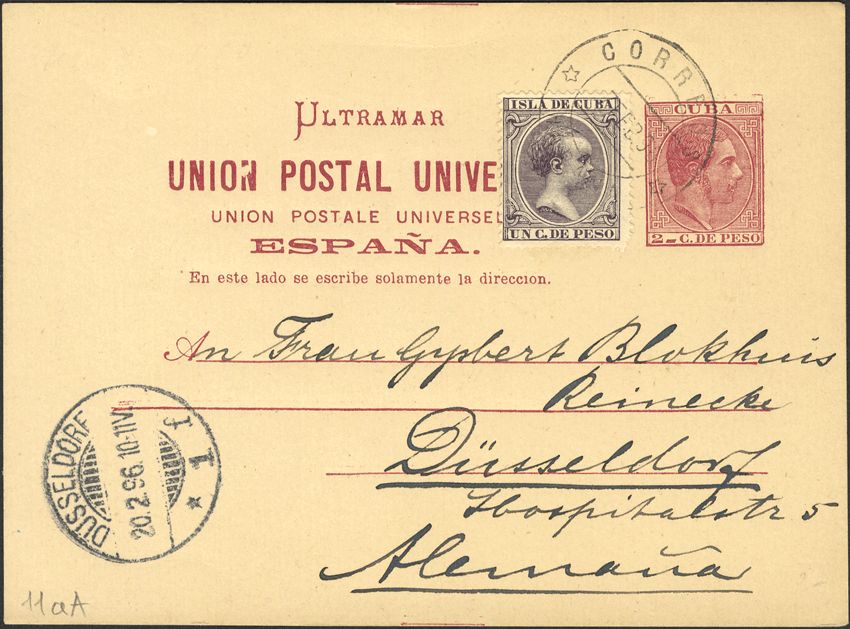 CORRE
ULTRAMAR
UNION POSTAL UNIVE
UNION POSTALE UNIVERSEL
ESPAÑA.
En este lado se escribe solamente la direccion.
ISLA DE CUBA
UN C. DE PESO
CUBA
2 C. DE PESO
An Frau Gysbert Blokhuis
Reinecke
Düsseldorf
Hospitalstr 5
Alemaña
DÜSSELDORF
20.2.96.10-11V.
* 1 f
11aA